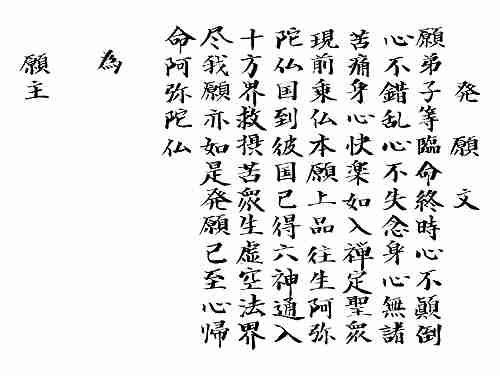 発願文
願弟子等臨命終時心不顛倒
心不錯乱心不失念身心無諸
苦痛身心快楽如入禅定聖衆
現前乗仏本願上品往生阿弥
陀仏国到彼国已得六神通入
十方界救摂苦衆生虚空法界
尽我願亦如是発願已至心帰
命阿弥陀仏
為
願主